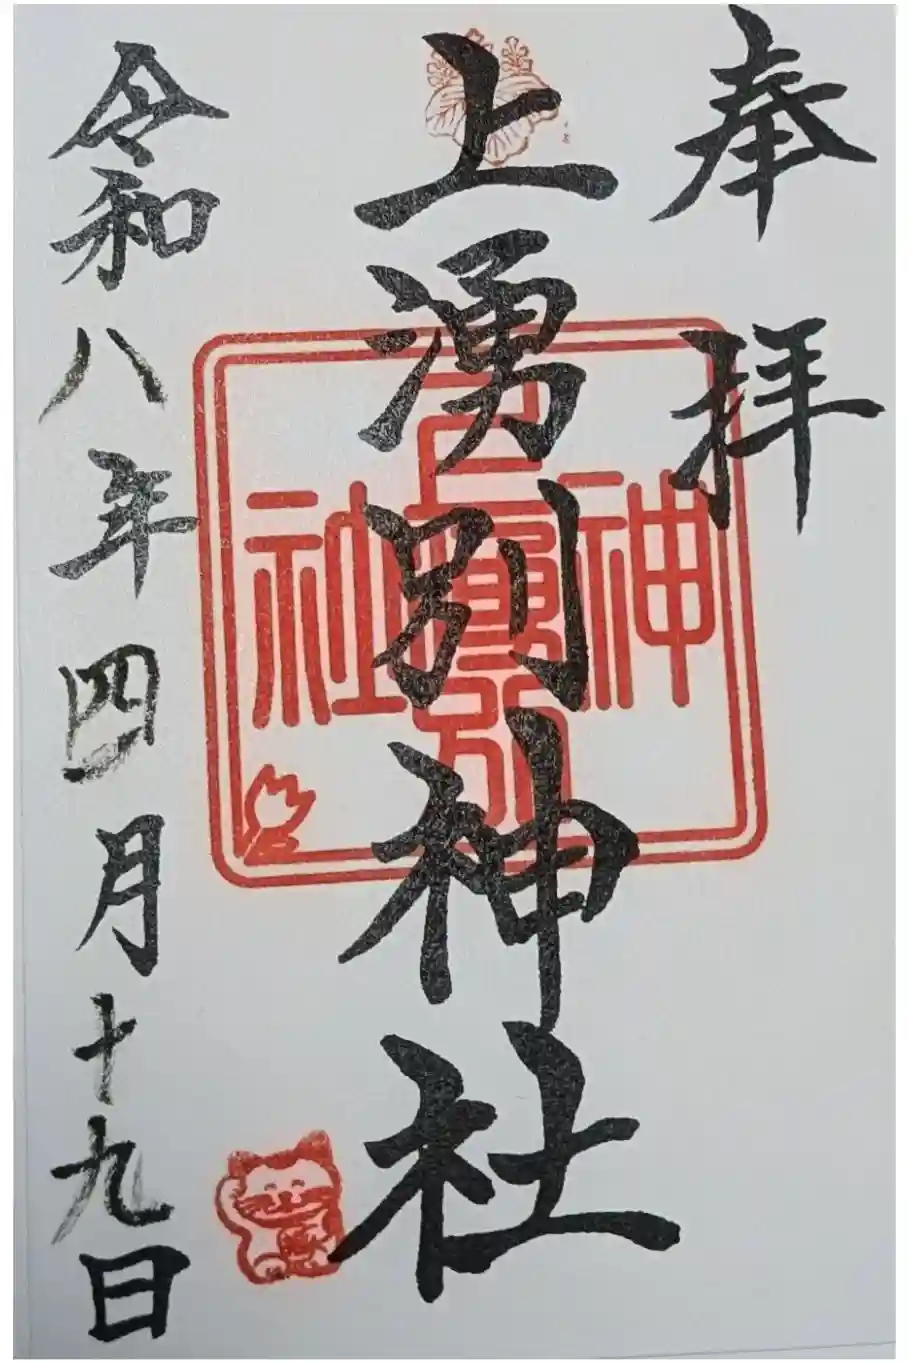 奉拝
上湧別神社
神
上湧別
社
令和八年四月十九日